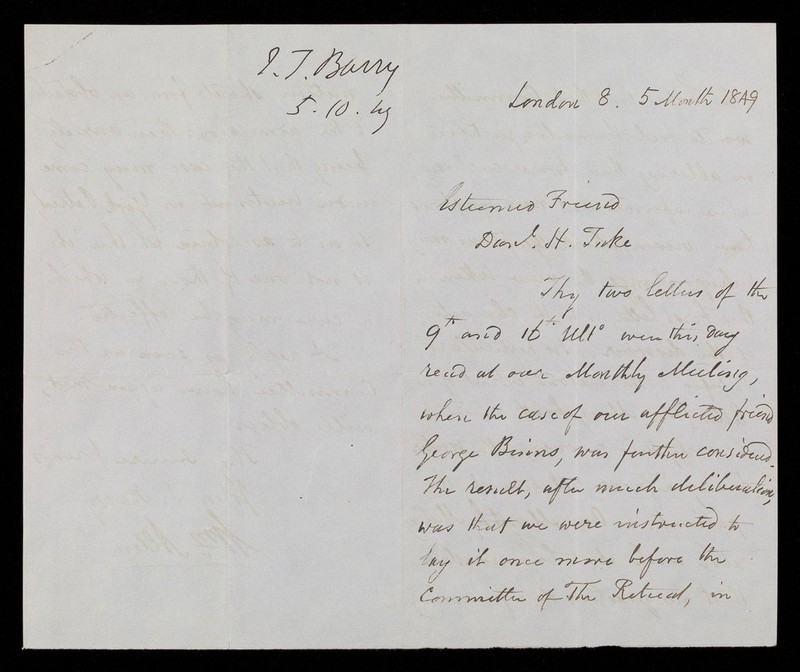 J. T. Barry
5. 10. 49
London 8. 5 Month 1849
Esteemed Friend
Danl. H. Tuke
Thy two letters of the
9th and 16th Ulto were this day
read at our Monthly Meeting,
when the case of our afflicted friend
George Binns, was further considered.
The result, after much deliberation,
was that we were instructed to
lay it once more before the
Committee of The Retreat, in